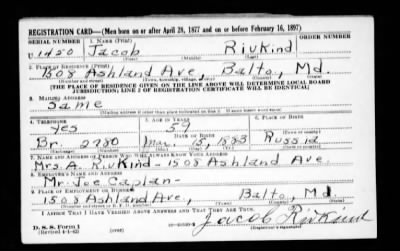 REGISTRATION CARD—(Men born on or after April 28, 1877 and on or before February 16, 1897)
SERIAL NUMBER 1. NAME (Print) ORDER NUMBER
U 1450 Jacob Rivkind
(First) (Middle) (Last)
2. PLACE OF RESIDENCE (Print)
1508 Ashland Ave, Balto, Md.
(Number and street) (Town, township, village, or city) (County) (State)
[THE PLACE OF RESIDENCE GIVEN ON THE LINE ABOVE WILL DETERMINE LOCAL BOARD
JURISDICTION; LINE 2 OF REGISTRATION CERTIFICATE WILL BE IDENTICAL]
3. MAILING ADDRESS
Same
[Mailing address if other than place indicated on line 2. If same insert word same]
4. TELEPHONE 5. AGE IN YEARS 6. PLACE OF BIRTH
Yes 59
DATE OF BIRTH (Town or county)
Br. 2780 Mar. 15, 1883 Russia
(Exchange) (Number) (Mo.) (Day) (Yr.) (State or country)
7. NAME AND ADDRESS OF PERSON WHO WILL ALWAYS KNOW YOUR ADDRESS
Mrs. A. Rivkind - 1508 Ashland Ave.
8. EMPLOYER'S NAME AND ADDRESS
Mr. Joe Caplan -
9. PLACE OF EMPLOYMENT OR BUSINESS
1508 Ashland Ave., Balto, Md.
(Number and street or R. F. D. number) (Town) (County) (State)
I AFFIRM THAT I HAVE VERIFIED ABOVE ANSWERS AND THAT THEY ARE TRUE.
D. S. S. Form 1
(Revised 4-1-42) (over) Jacob Rivkind